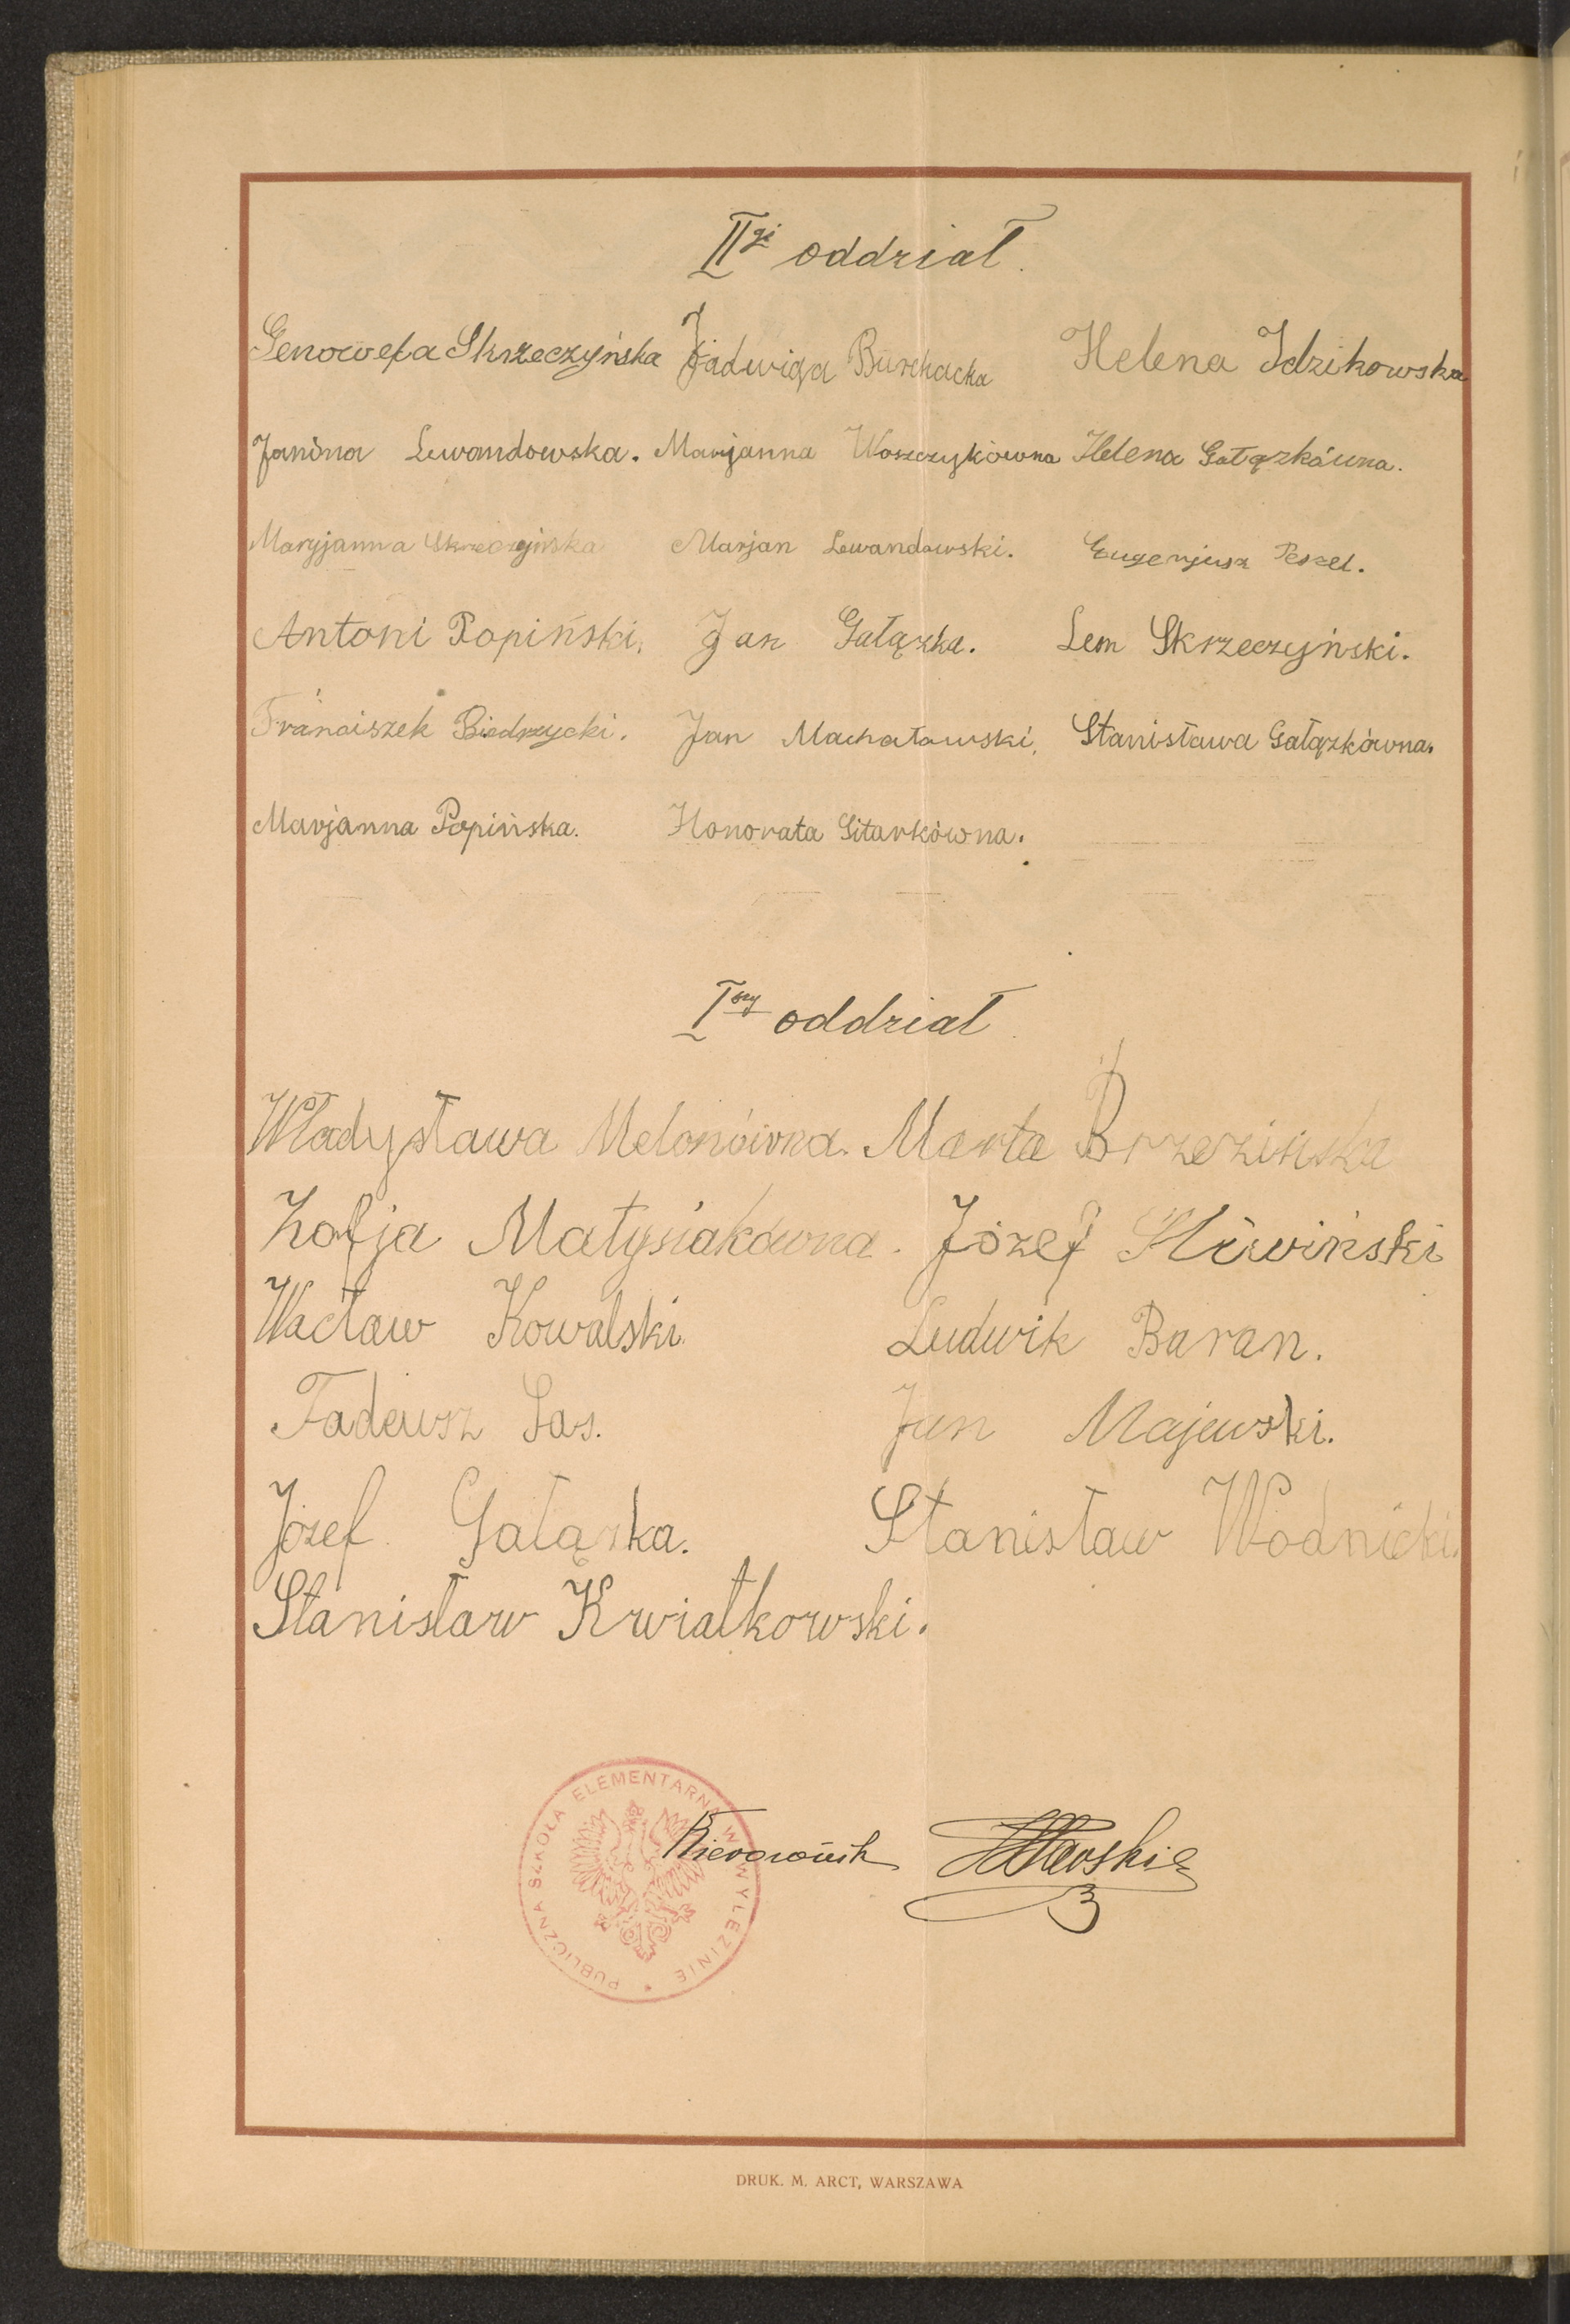 IIgi oddział
Genowefa Skrzeczyńska Jadwiga Burchacka Helena Idzikowska
Janina Lewandowska. Maryjanna Woszczykówna Helena Gałązkówna.
Maryjanna Skrzeczyńska Marjan Lewandowski. Eugenjusz Peszel.
Antoni Popiński, Jan Gałązka. Leon Skrzeczyński.
Franciszek Biedrzycki. Jan Machałowski, Stanisława Gałązkówna.
Marjanna Popińska. Honorata Gitarkówna.
Iszy oddział
Władysława Melonówna. Marta Brzezińska
Zofja Matysiakówna. Józef Śliwiński
Wacław Kowalski. Ludwik Baran.
Tadeusz Sas. Jan Majewski.
Józef Gałązka. Stanisław Wodnicki.
Stanisław Kwiatkowski.
PUBLICZNA SZKOŁA ELEMENTARNA W WYLEZINIE
Kierownik
DRUK. M. ARCT, WARSZAWA